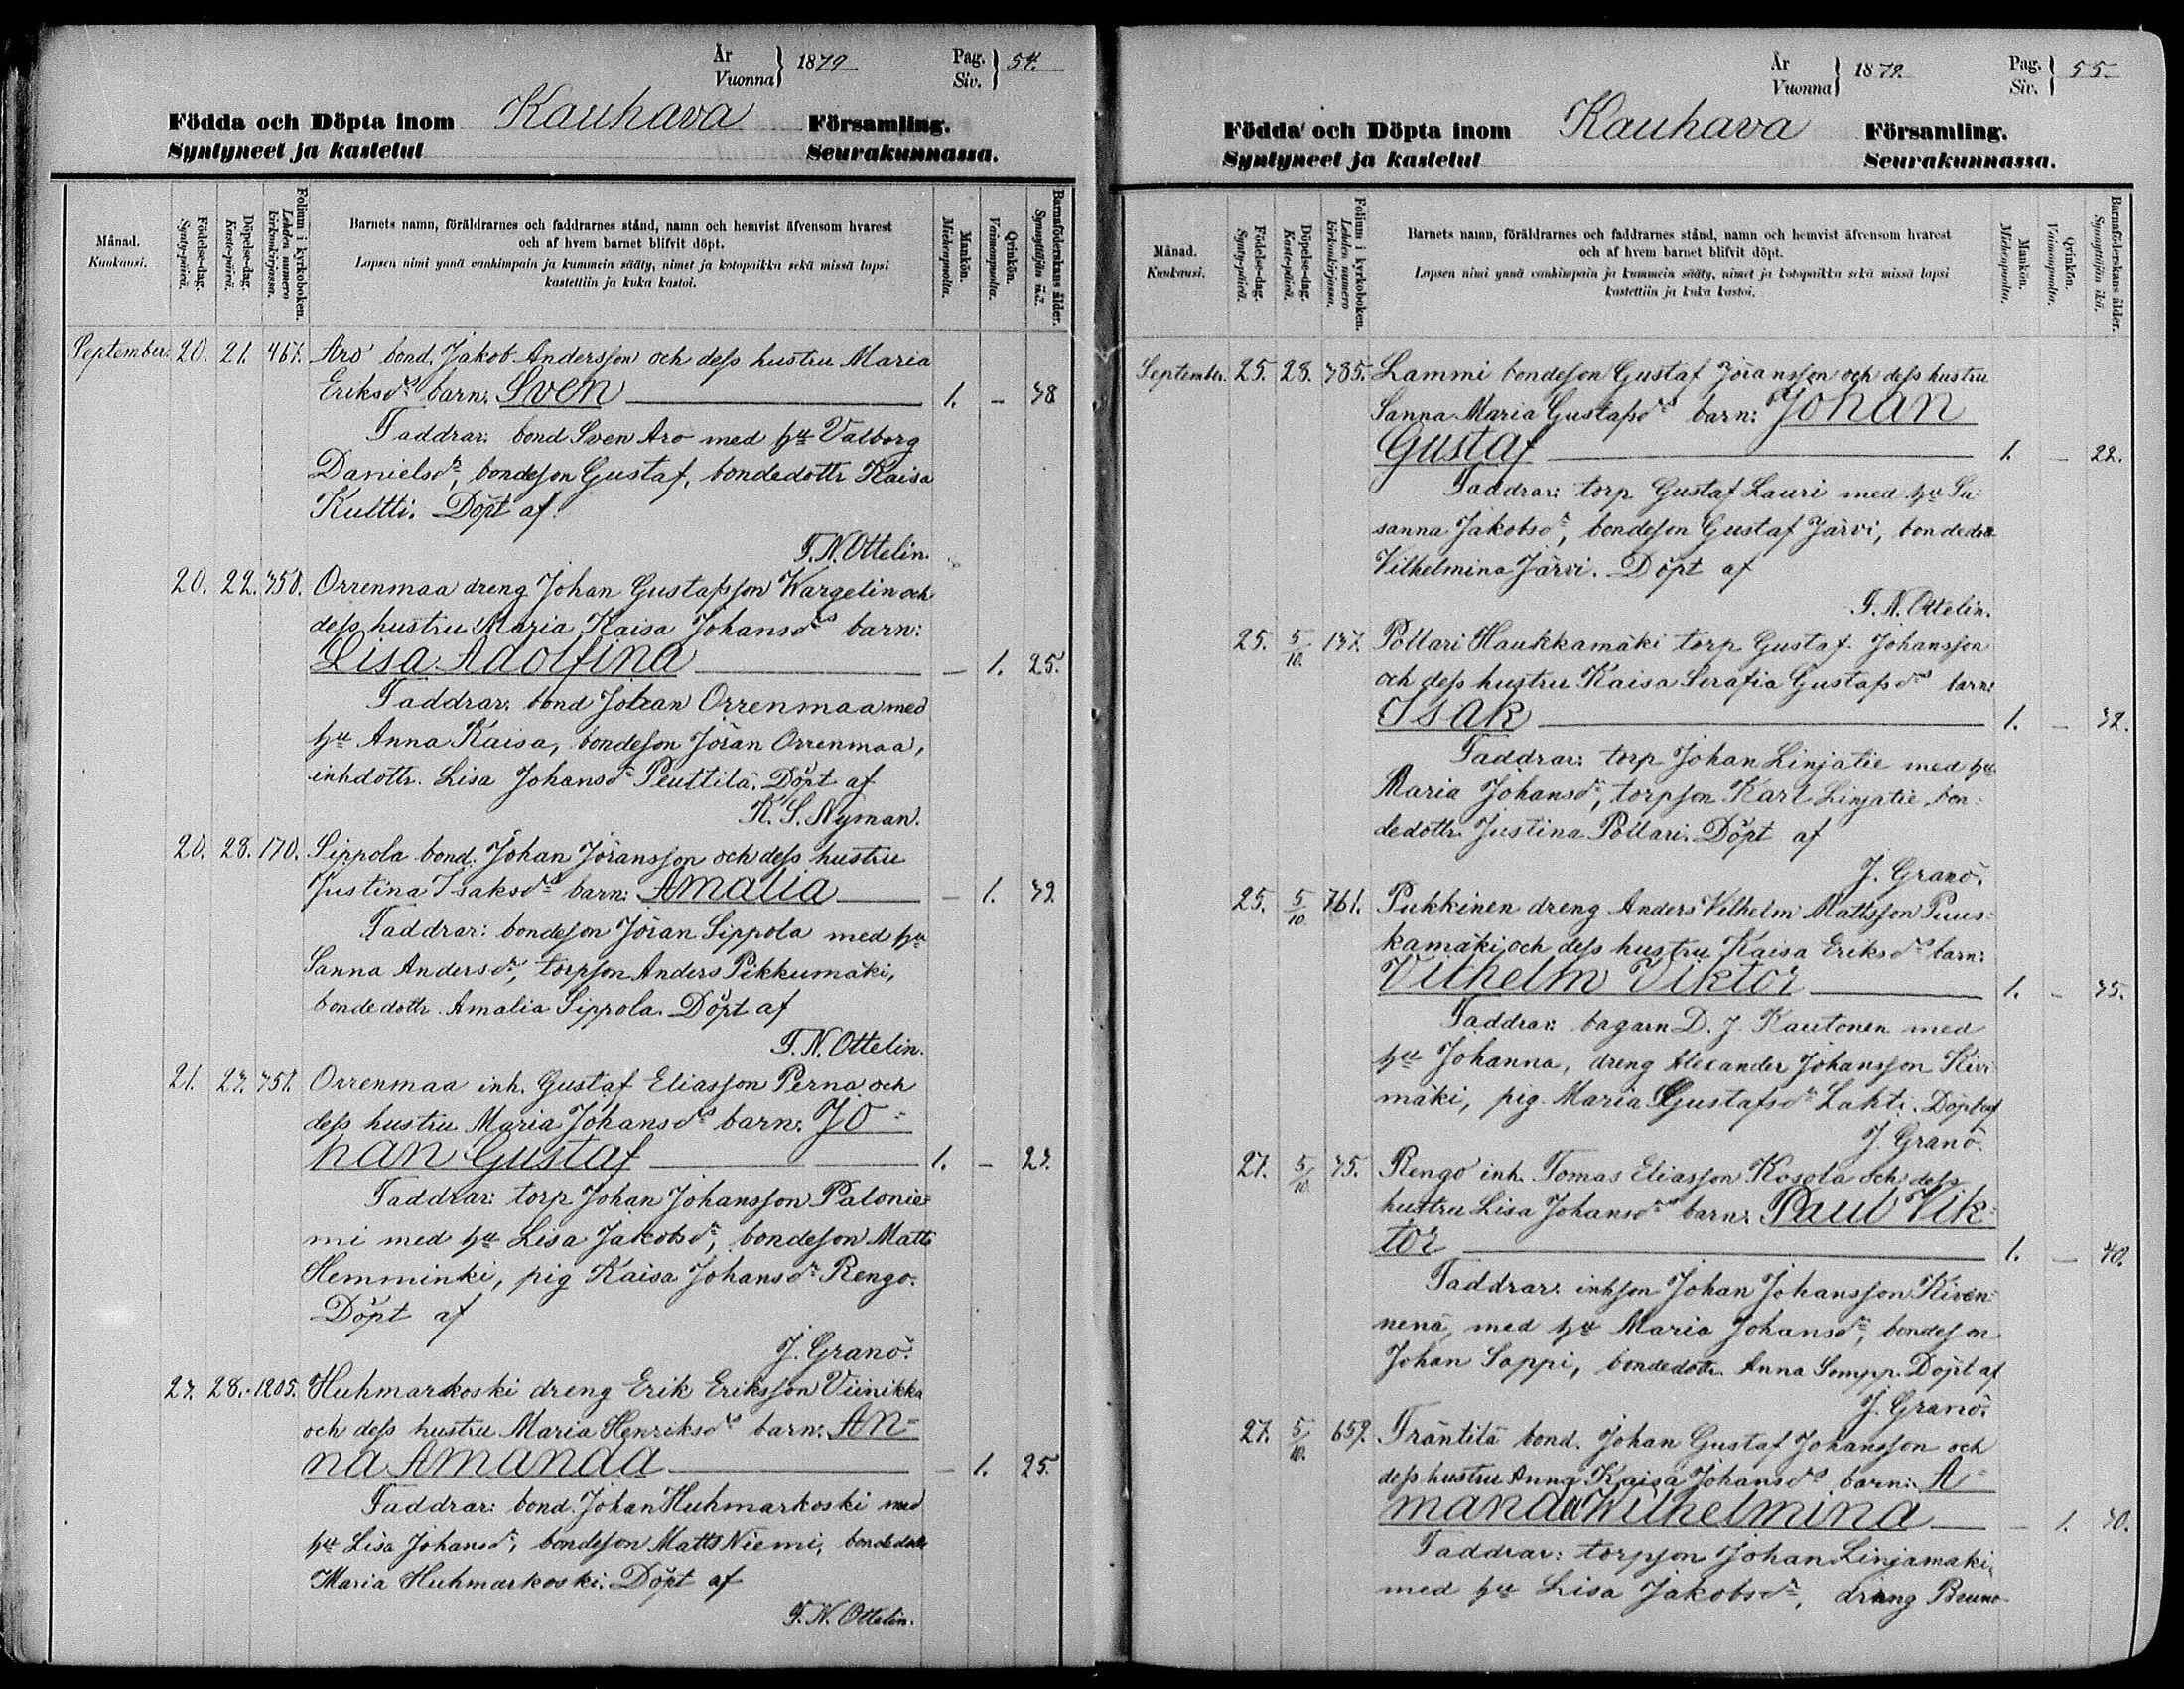 År
Vuonna } 1879
Pag.
Siv. } 54.
Födda och Döpta inom Kauhava Församling.
Syntyneet ja kastetut Seurakunnassa.
Månad.
Kuukausi.
Födelse-dag.
Synty-päivä.
Döpelse-dag.
Kaste-päivä.
Folium i kyrkoboken.
Lehden numero
kirkonkirjassa.
Barnets namn, föräldrarnes och faddrarnes stånd, namn och hemvist äfvensom hvarest
och af hvem barnet blifvit döpt.
Lapsen nimi ynnä vanhimpain ja kummein sääty, nimet ja kotopaikka sekä missä lapsi
kastettiin ja kuka kastoi.
Mankön.
Miehenpuolta.
Qvinkön.
Vaimonpuolta.
Barnaföderskans ålder.
Synnyttäjän ikä.
September. 20. 21. 467. Aro bond. Jakob Andersson och dess hustru Maria
Eriksdrs barn: Sven 1. - 38
Faddrar: bond Sven Aro med hu Valborg
Danielsdr, bondeson Gustaf, bondedottr Kaisa
Kultti. Döpt af
F. N. Ottelin.
20. 22. 758. Orrenmaa dreng Johan Gustafsson Kargelin och
dess hustru Maria Kaisa Johansdrs barn:
Lisa Adolfina - 1. 25.
Faddrar: bond Johan Orrenmaa med
hu Anna Kaisa, bondeson Jöran Orrenmaa,
inhdottr. Lisa Johansdr Penttilä. Döpt af
K. S. Nyman.
20. 28. 170. Sippola bond. Johan Jöransson och dess hustru
Justina Isaksdrs barn: Amalia - 1. 39.
Faddrar: bondeson Jöran Sippola med hu
Sanna Andersdr, torpson Anders Pikkumäki,
bondedottr. Amalia Sippola. Döpt af
F. N. Ottelin.
21. 27. 751. Orrenmaa inh. Gustaf Eliasson Perna och
dess hustru Maria Johansdrs barn: Jo=
han Gustaf 1. - 27.
Faddrar: torp Johan Johansson Palonie=
mi med hu Lisa Jakobsdr, bondeson Matts
Hemminki, pig Kaisa Johansdr Rengo.
Döpt af
J. Granö.
27. 28. 1205. Huhmarkoski dreng Erik Eriksson Viinikka
och dess hustru Maria Henriksdrs barn: An=
na Amanda - 1. 25.
Faddrar: bond. Johan Huhmarkoski med
hu Lisa Johansdr, bondeson Matts Niemi, bondedottr
Maria Huhmarkoski. Döpt af
F. N. Ottelin.
År
Vuonna } 1879.
Pag.
Siv. } 55.
Födda och Döpta inom Kauhava Församling.
Syntyneet ja kastetut Seurakunnassa.
Månad.
Kuukausi.
Födelse-dag.
Synty-päivä.
Döpelse-dag.
Kaste-päivä.
Folium i kyrkoboken.
Lehden numero
kirkonkirjassa.
Barnets namn, föräldrarnes och faddrarnes stånd, namn och hemvist äfvensom hvarest
och af hvem barnet blifvit döpt.
Lapsen nimi ynnä vanhimpain ja kummein sääty, nimet ja kotopaikka sekä missä lapsi
kastettiin ja kuka kastoi.
Mankön.
Miehenpuolta.
Qvinkön.
Vaimonpuolta.
Barnaföderskans ålder.
Synnyttäjän ikä.
September. 25. 28. 785. Lammi bondeson Gustaf Jöransson och dess hustru
Sanna Maria Gustafsdrs barn: Johan
Gustaf 1. - 22.
Faddrar: torp Gustaf Lauri med hu Su=
sanna Jakobsdr, bondeson Gustaf Järvi, bondedottr
Vilhelmina Järvi. Döpt af
F. N. Ottelin.
25. 5/10. 137. Pollari Haukkamäki torp Gustaf Johansson
och dess hustru Kaisa Serafia Gustafsdrs barn:
Isak 1. - 32.
Faddrar: torp Johan Linjatie med hu
Maria Johansdr, torpson Karl Linjatie, bon=
dedottr Justina Pollari. Döpt af
J. Granö.
25. 5/10. 761. Pukkinen dreng Anders Vilhelm Mattsson Puus=
kamäki och dess hustru Kaisa Eriksdrs barn:
Vilhelm Viktor 1. - 35.
Faddrar: bagarn D. J. Kautonen med
hu Johanna, dreng Alexander Johansson Kivi
mäki, pig Maria Gustafsdr Lahti. Döpt af
J. Granö.
27. 5/10. 75. Rengo inh. Tomas Eliasson Kosola och dess
hustru Lisa Johansdrs barn: Paul Vik=
tor 1. - 40.
Faddrar: inhson Johan Johansson Kiven=
nenä, med hu Maria Johansdr, bondeson
Johan Sappi, bondedottr Anna Sompp. Döpt af
J. Granö.
27. 5/10. 659. Träntilä bond. Johan Gustaf Johansson och
dess hustru Anna Kaisa Johansdrs barn: A=
manda Wilhelmina - 1. 30.
Faddrar: torpson Johan Linjamäki,
med hu Lisa Jakobsdr, dräng Bruno